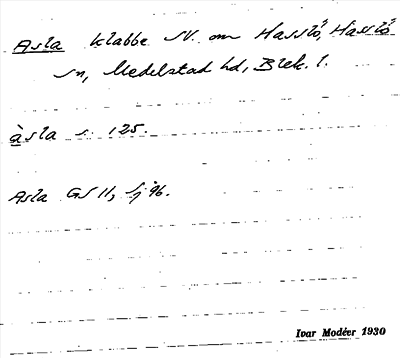 Asla klabbe SV. om Hasslö, Hasslö
sn, Medelstad hd, Blek. l.
àsla s. 125.
Asla GS 11, Sj 96.
Ivar Modéer 1930